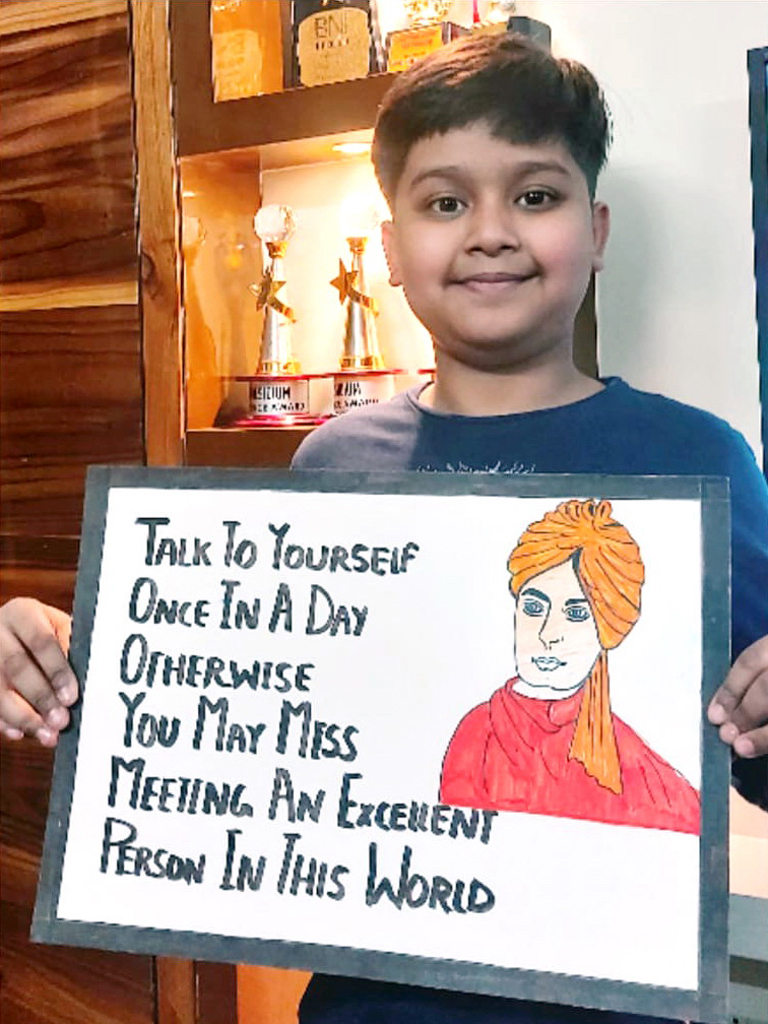 BNI
TALK TO YOURSELF
ONCE IN A DAY
OTHERWISE
YOU MAY MISS
MEETING AN EXCELLENT
PERSON IN THIS WORLD